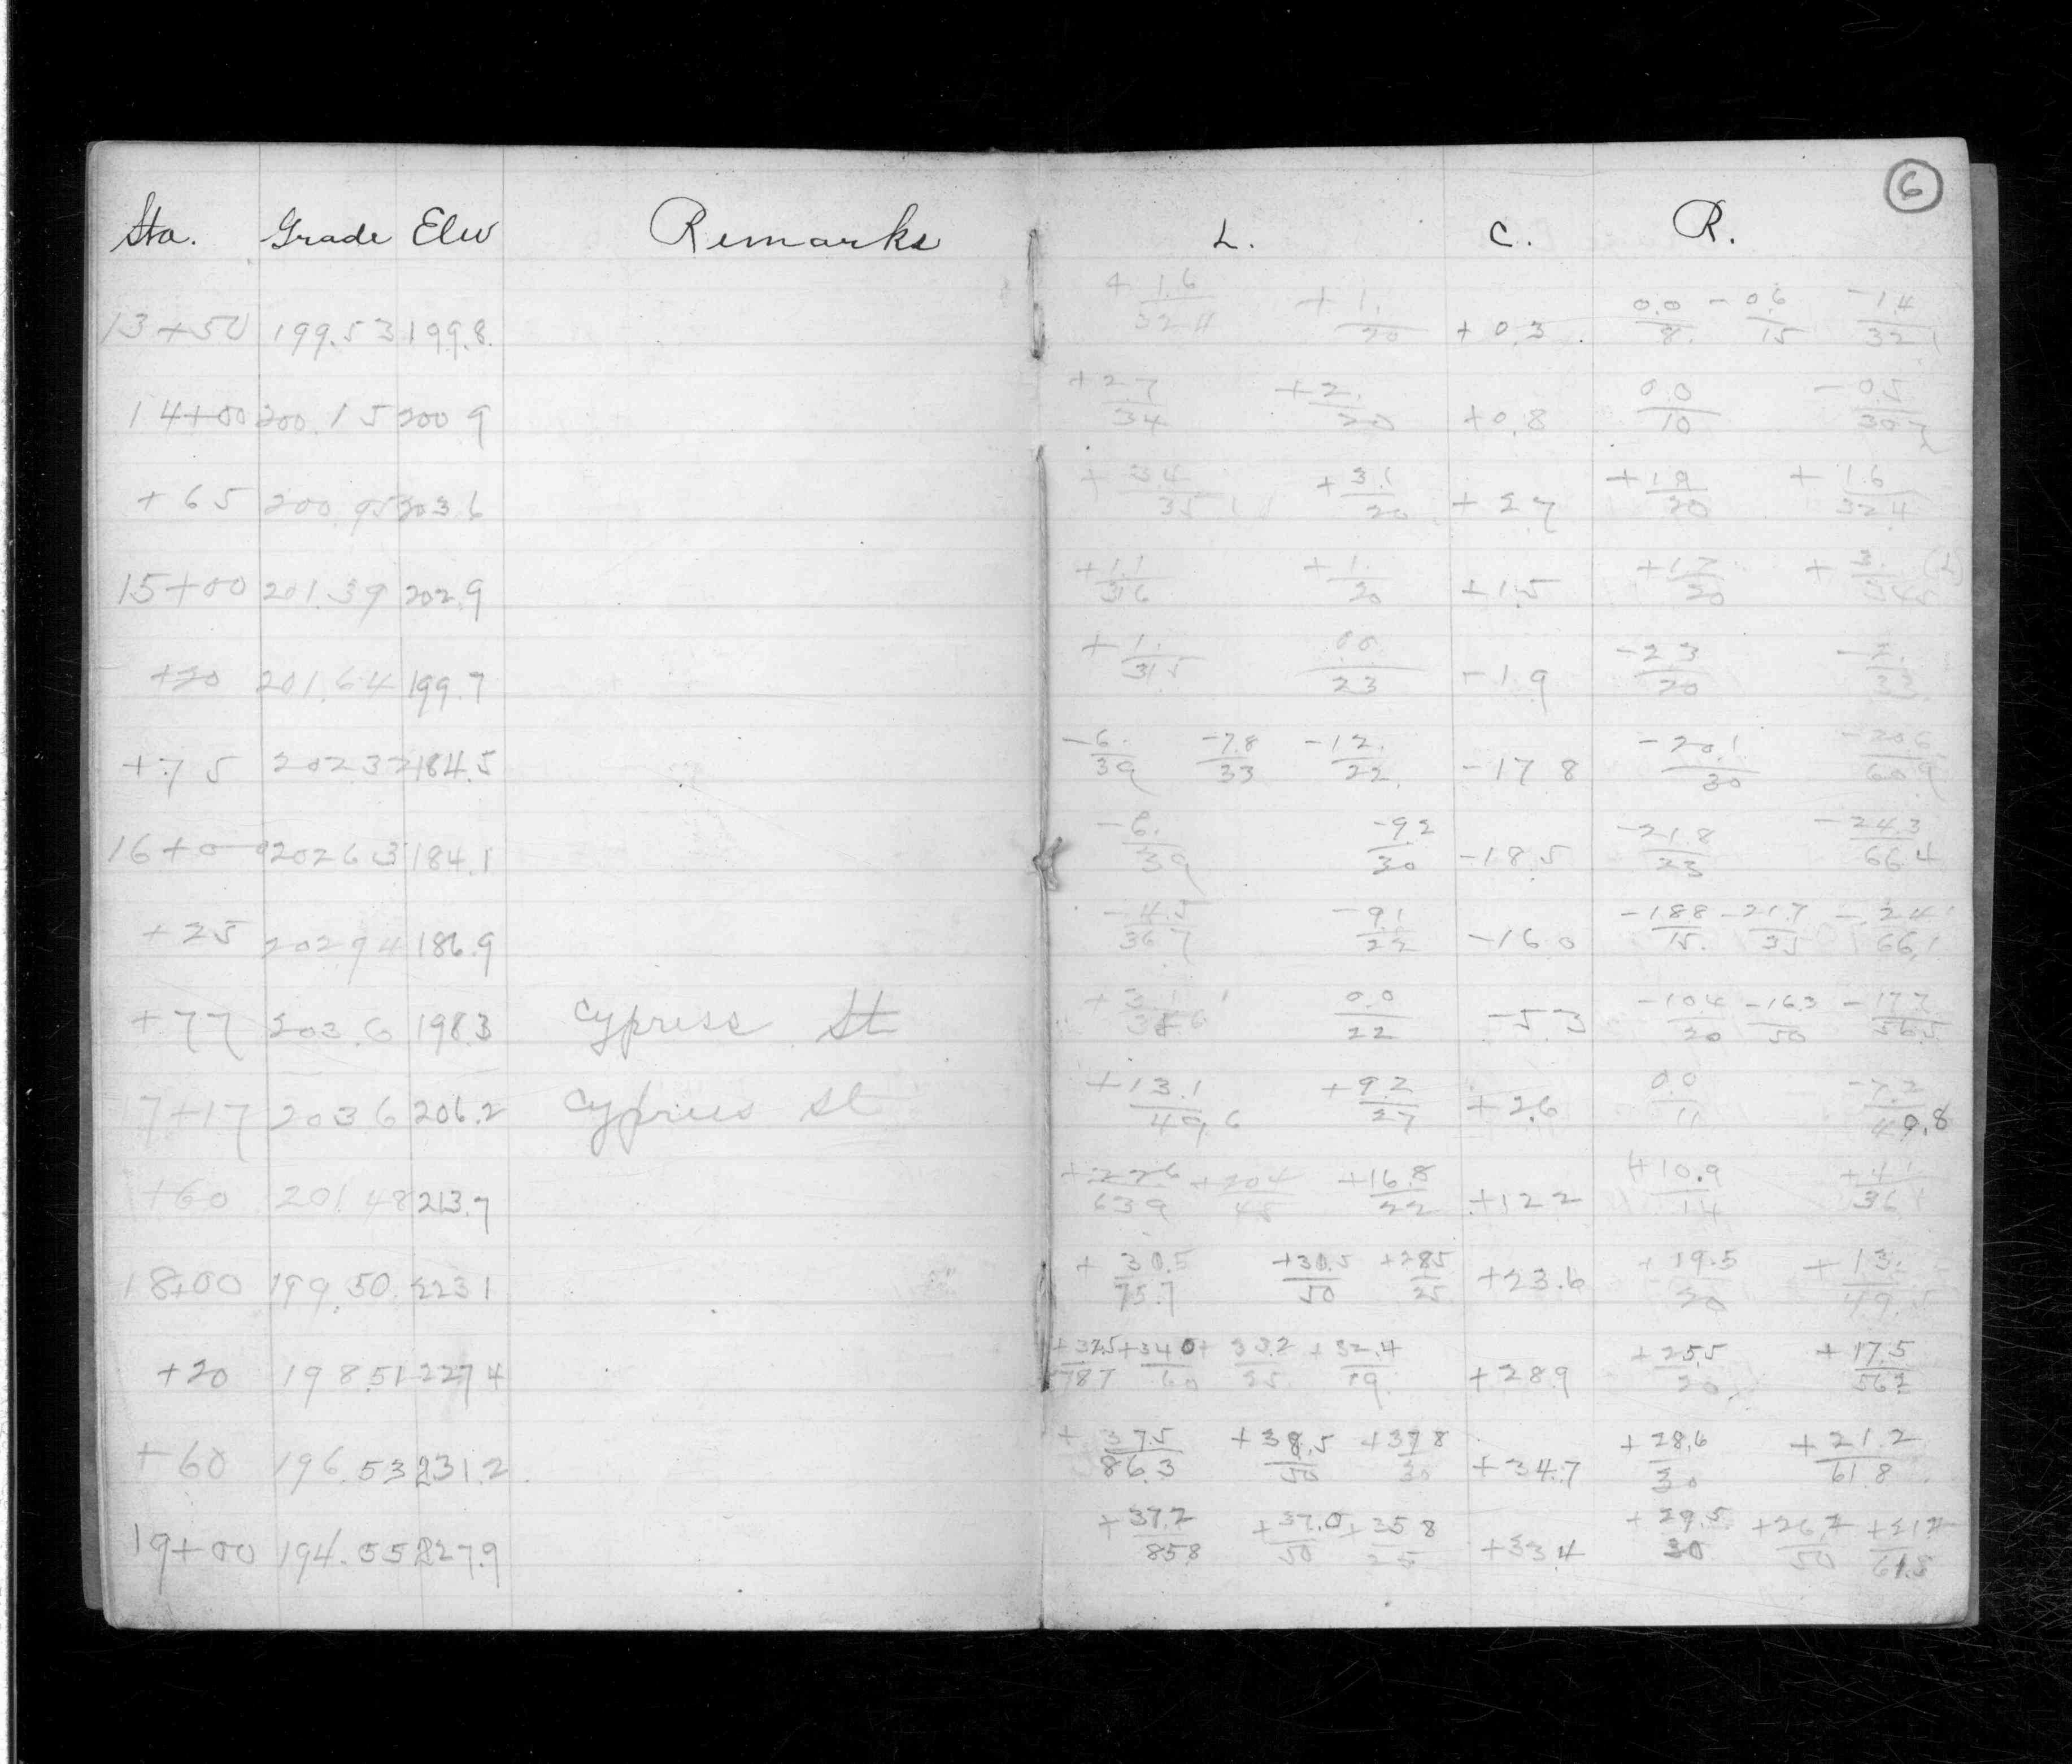 6
Sta. Grade Elev Remarks L. C. R.
13+50 199.53 199.8 +1.6/32.4 +1./20 +0.3 0.0/8. -0.6/15 -1.4/32.1
14+00 200.15 200.9 +2.7/34 +2./20 +0.8 0.0/10 -0.5/30.7
+65 200.95 203.6 +3.4/35.1 +3.1/20 +2.7 +1.9/20 +1.6/32.4
15+00 201.39 202.9 +1.1/31.6 +1./20 +1.5 +1.7/20 +3./34.5
+20 201.64 199.7 +1./31.5 0.0/23 -1.9 -2.3/20 -2./33
+75 202.32 184.5 -6./39 -7.8/33 -12./22 -17.8 -20.1/30 -20.6/60.9
16+00 202.63 184.1 -6./39 -9.2/30 -18.5 -21.8/23 -24.3/66.4
+25 202.94 186.9 -4.5/36.7 -9.1/22 -16.0 -18.8/15. -21.7/35 -24.1/66.1
+77 203.6 198.3 Cypress St 0.0/22 -5.3 -10.4/20 -16.3/50 -17.7/56.5
17+17 203.6 206.2 Cypress St +13.1/49.6 +9.2/27 +2.6 0.0/11 -7.2/40.8
+60 201.48 213.7 +22.6/63.9 +20.4/45 +16.8/22 +12.2 +10.9/14 +4.1/36.1
18+00 199.50 223.1 +30.5/75.7 +30.5/50 +28.5/25 +23.6 +19.5/20 +13./49.5
+20 198.51 227.4 +32.5/78.7 +34.0/60 +33.2/25 +32.4/19 +28.9 +25.5/20 +17.5/56.2
+60 196.53 231.2 +37.5/86.3 +38.5/50 +37.8/30 +34.7 +28.6/30 +21.2/61.8
19+00 194.55 227.9 +37.2/85.8 +37.0/50 +35.8/25 +33.4 +29.5/30 +26.2/50 +21.2/61.8